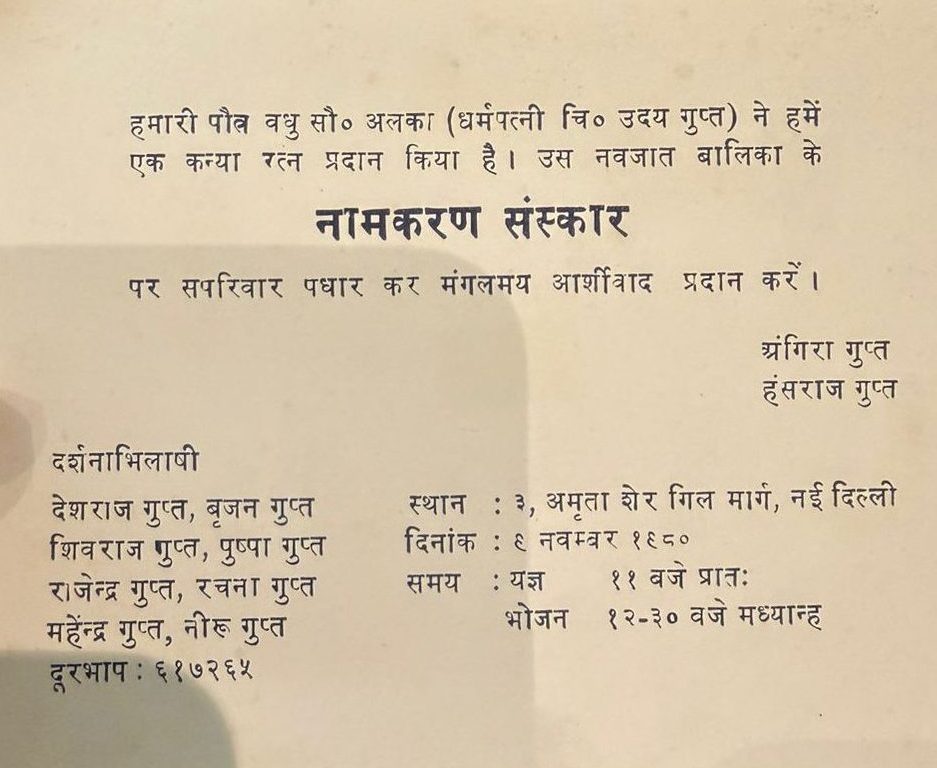 हमारी पौत्र वधु सौ० अलका (धर्मपत्नी चि० उदय गुप्त) ने हमें
एक कन्या रत्न प्रदान किया है। उस नवजात बालिका के
नामकरण संस्कार
पर सपरिवार पधार कर मंगलमय आर्शीवाद प्रदान करें।
अंगिरा गुप्त
हंसराज गुप्त
दर्शनाभिलाषी
देशराज गुप्त, बृजन गुप्त
शिवराज गुप्त, पुष्पा गुप्त
राजेन्द्र गुप्त, रचना गुप्त
महेंन्द्र गुप्त, नीरू गुप्त
दूरभाप : ६१७२६५
स्थान : ३, अमृता शेर गिल मार्ग, नई दिल्ली
दिनांक : ९ नवम्बर १९८०
समय : यज्ञ ११ बजे प्रातः
भोजन १२-३० वजे मध्यान्ह